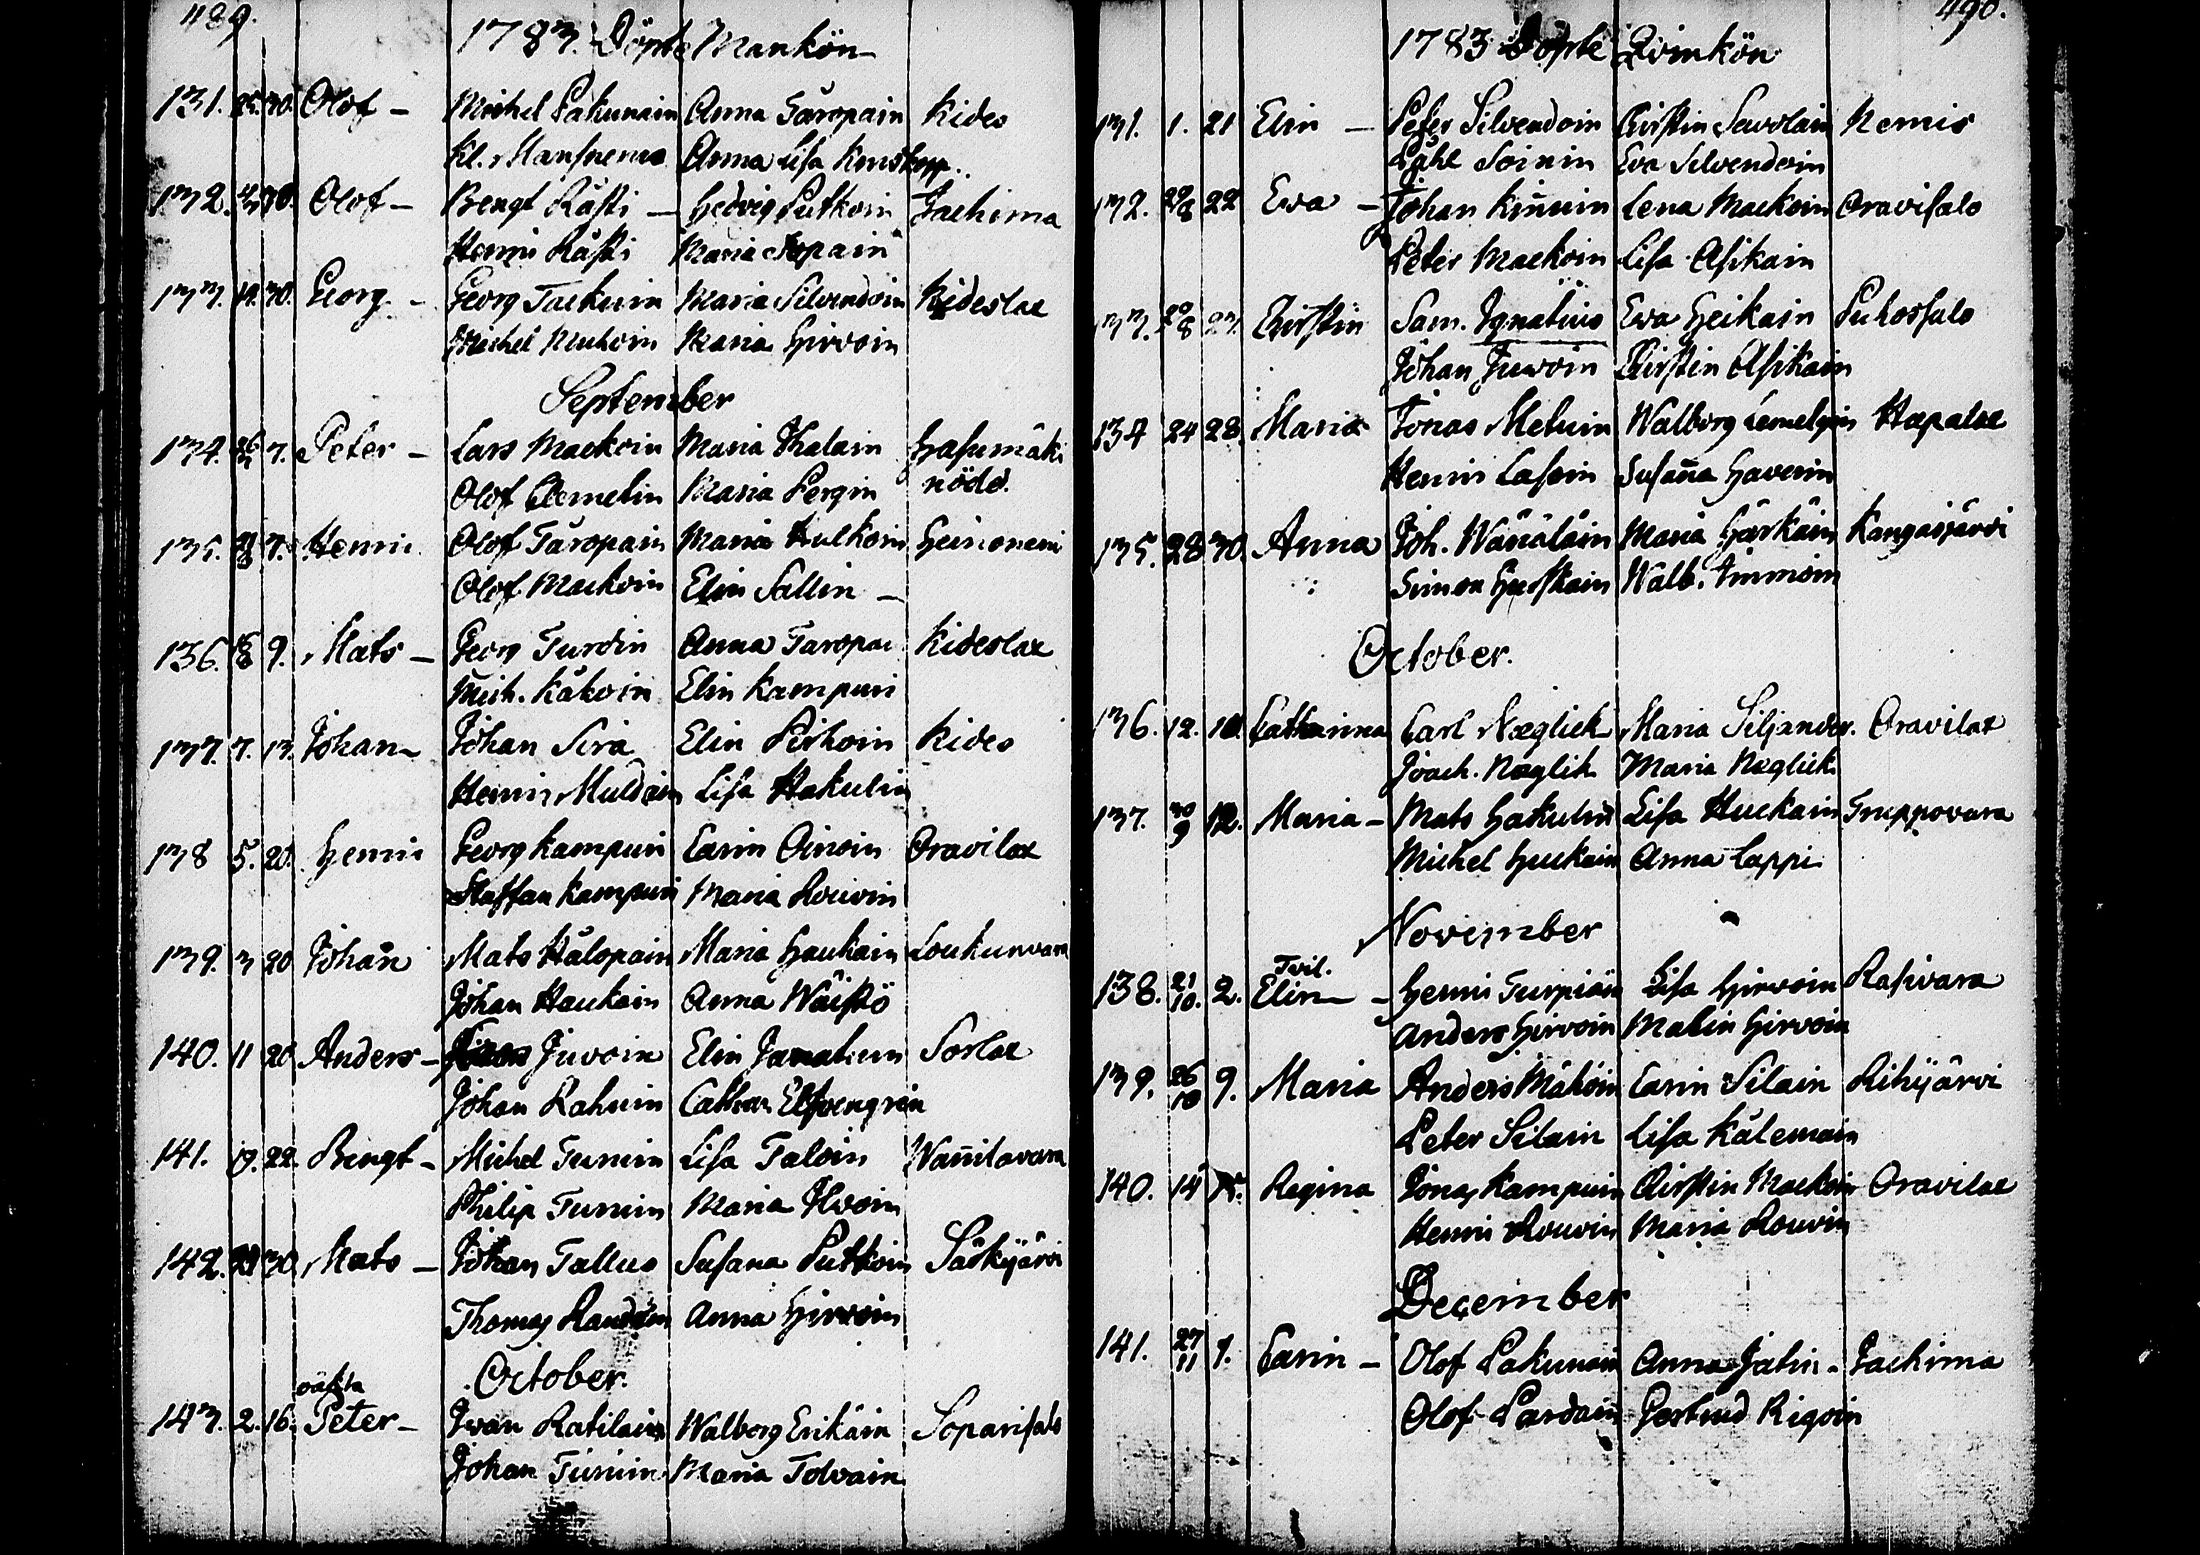 489.
1783. Döpte Mankön
131. 30. Olof - Michel Pakunain Anna Taropain Kides
Kl. Mansnerus Anna Lisa
132. 30. Olof - Bengt Rästi - Hedvig Putkoin Jachima
Henric Rästi Maria
133. 19. 30. Georg - Georg Tackuin Maria Silvendoin Kideslax
Michel Muhoin Maria Hirvoin
September
134. 7. Peter - Lars Mackoin Maria Ihalain Hasumäki
Olof Clemetin Maria Pergin nödd.
135. 7. Henric Olof Taropain Maria Hulkoin Heinoniemi
Olof Mackoin Elin Sallin -
136. 9. Mats - Georg Turdin Anna Taropai Kideslax
Mich. Käkoin Elin Kampuri
137. 7. 13. Johan - Johan Sira Elin Pirhoin Kides
Henric Muldain Lisa Hakulin
138 5. 20. Henric Georg Kampuri Carin Oinoin Oravilax
Staffan Kampuri Maria Rouvin
139. 3 20 Johan Mats Hälopain Maria Haukain Loukunvara
Johan Haukain Anna Wäistö
140. 11 20 Anders - Juvoin Elin Sorlax
Johan Rahuin Cathar.
141. 19. 22. Bengt - Michel Turuin Lisa Taloin Wanilavara
Philip Turuin Maria Ilvoin
142. 30 Mats - Johan Tallus Susana Putkoin Säskijärvi
Thomas Anna Hirvoin
October.
oäkta
143. 2. 16. Peter - Iwan Ratilain Walborg Erikäin Soparisalo
Johan Turuin Maria Tolvain
490.
1783 Döpte Qvinkön
131. 1. 21 Elin - Peter Silvendoin Kirstin Savolain Niemis
Påhl Soinin Eva Silvendoin
132. 29/8 22 Eva - Johan Kinuin Lena Mackoin Oravisalo
Peter Mackoin Lisa Asikain
133. 29/8 23. Kirstin Sam. Ignatius Eva Heikain Puhossalo
Johan Juvoin Kirstin Asikain
134 24 28 Maria Jonas Meluin Walborg Hapalax
Henric Lassin Susaña Haverin
135. 28 30. Anna Joh. Wänäläin Maria Härkäin Kangasjärvi
Simon Walb. Immoin
October.
136. 12. Catharina Carl Næglick Maria Siljander. Oravilax
Joach. Næglick Maria Næglick
137. 30/9 12. Maria - Mats Hakulin Lisa Huckain Truppovara
Michel Huckain Anna Lappi
November
Tvil.
138. 21/10. 2. Elin - Henric Turpiain Lisa Hirvoin Rasivara
Anders Hirvoin Malin Hirvoin
139. 26/10 9. Maria Anders Mähöin Carin Silain Rihijärvi
Peter Silain Lisa Kälemain
140. 14 Regina Jonas Kampuin Kirstin Mackoin Oravilax
Henric Rouvin Maria Rouvin
December
141. 27/11 7. Carin - Olof Pakunain Anna Jatin - Jachima
Olof Pardain Gertrud Rigoin